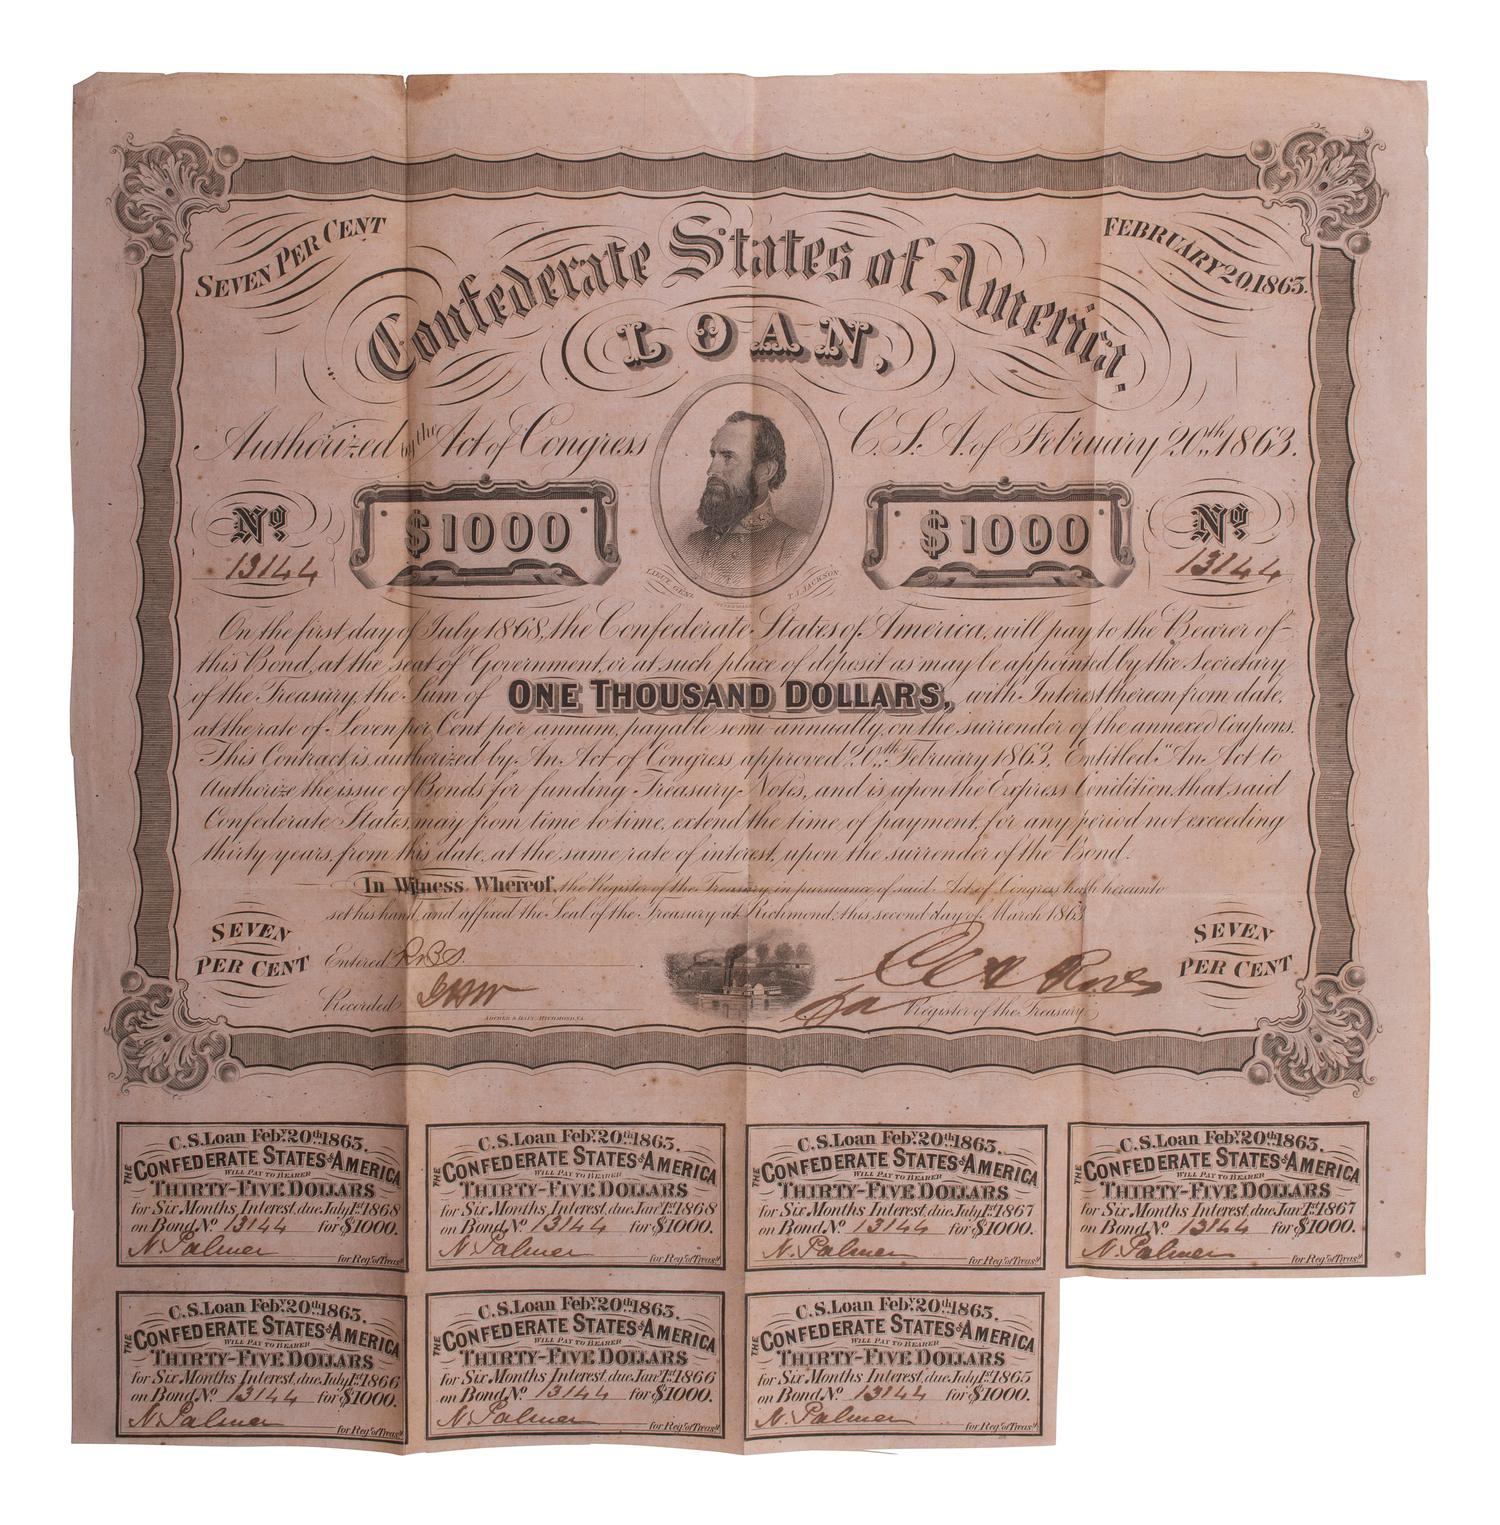 SEVEN PER CENT
FEBRUARY 20, 1863.
Confederate States of America.
LOAN,
Authorized by the Act of Congress C.S.A. of February 20th 1863.
No. 13144
$1000
$1000
No. 13144
LIEUT. GENL. T.J. JACKSON
On the first day of July 1868, the Confederate States of America, will pay to the Bearer of
this Bond, at the seat of Government, or at such place of deposit as may be appointed by the Secretary
of the Treasury, the Sum of ONE THOUSAND DOLLARS, with Interest thereon from date,
at the rate of Seven per Cent per annum, payable semi annually, on the surrender of the annexed Coupons.
This Contract is authorized by An Act of Congress, approved 20th February 1863, Entitled "An Act to
Authorize the issue of Bonds for funding Treasury Notes, and is upon the Express Condition, that said
Confederate States, may from time to time, extend the time of payment, for any period not exceeding
thirty years, from this date, at the same rate of interest, upon the surrender of the Bond.
In Witness Whereof, the Register of the Treasury in pursuance of said Act of Congress hath hereunto
set his hand, and affixed the Seal of the Treasury at Richmond, this second day of March 1863
SEVEN
PER CENT
Entered
Recorded
ARCHER & DALY, RICHMOND, VA.
Register of the Treasury
SEVEN
PER CENT
C.S. Loan Feby. 20th 1863.
THE CONFEDERATE STATES of AMERICA
WILL PAY TO BEARER
THIRTY-FIVE DOLLARS
for Six Months Interest, due July 1st 1868
on Bond No. 13144 for $1000.
N. Palmer
for Reg. of Treasy.
C.S. Loan Feby. 20th 1863.
THE CONFEDERATE STATES of AMERICA
WILL PAY TO BEARER
THIRTY-FIVE DOLLARS
for Six Months Interest, due Jany 1st 1868
on Bond No. 13144 for $1000.
N. Palmer
for Reg. of Treasy.
C.S. Loan Feby. 20th 1863.
THE CONFEDERATE STATES of AMERICA
WILL PAY TO BEARER
THIRTY-FIVE DOLLARS
for Six Months Interest, due July 1st 1867
on Bond No. 13144 for $1000.
N. Palmer
for Reg. of Treasy.
C.S. Loan Feby. 20th 1863.
THE CONFEDERATE STATES of AMERICA
WILL PAY TO BEARER
THIRTY-FIVE DOLLARS
for Six Months Interest, due Jany 1st 1867
on Bond No. 13144 for $1000.
N. Palmer
for Reg. of Treasy.
C.S. Loan Feby. 20th 1863.
THE CONFEDERATE STATES of AMERICA
WILL PAY TO BEARER
THIRTY-FIVE DOLLARS
for Six Months Interest, due July 1st 1866
on Bond No. 13144 for $1000.
N. Palmer
for Reg. of Treasy.
C.S. Loan Feby. 20th 1863.
THE CONFEDERATE STATES of AMERICA
WILL PAY TO BEARER
THIRTY-FIVE DOLLARS
for Six Months Interest, due Jany 1st 1866
on Bond No. 13144 for $1000.
N. Palmer
for Reg. of Treasy.
C.S. Loan Feby. 20th 1863.
THE CONFEDERATE STATES of AMERICA
WILL PAY TO BEARER
THIRTY-FIVE DOLLARS
for Six Months Interest, due July 1st 1865
on Bond No. 13144 for $1000.
N. Palmer
for Reg. of Treasy.